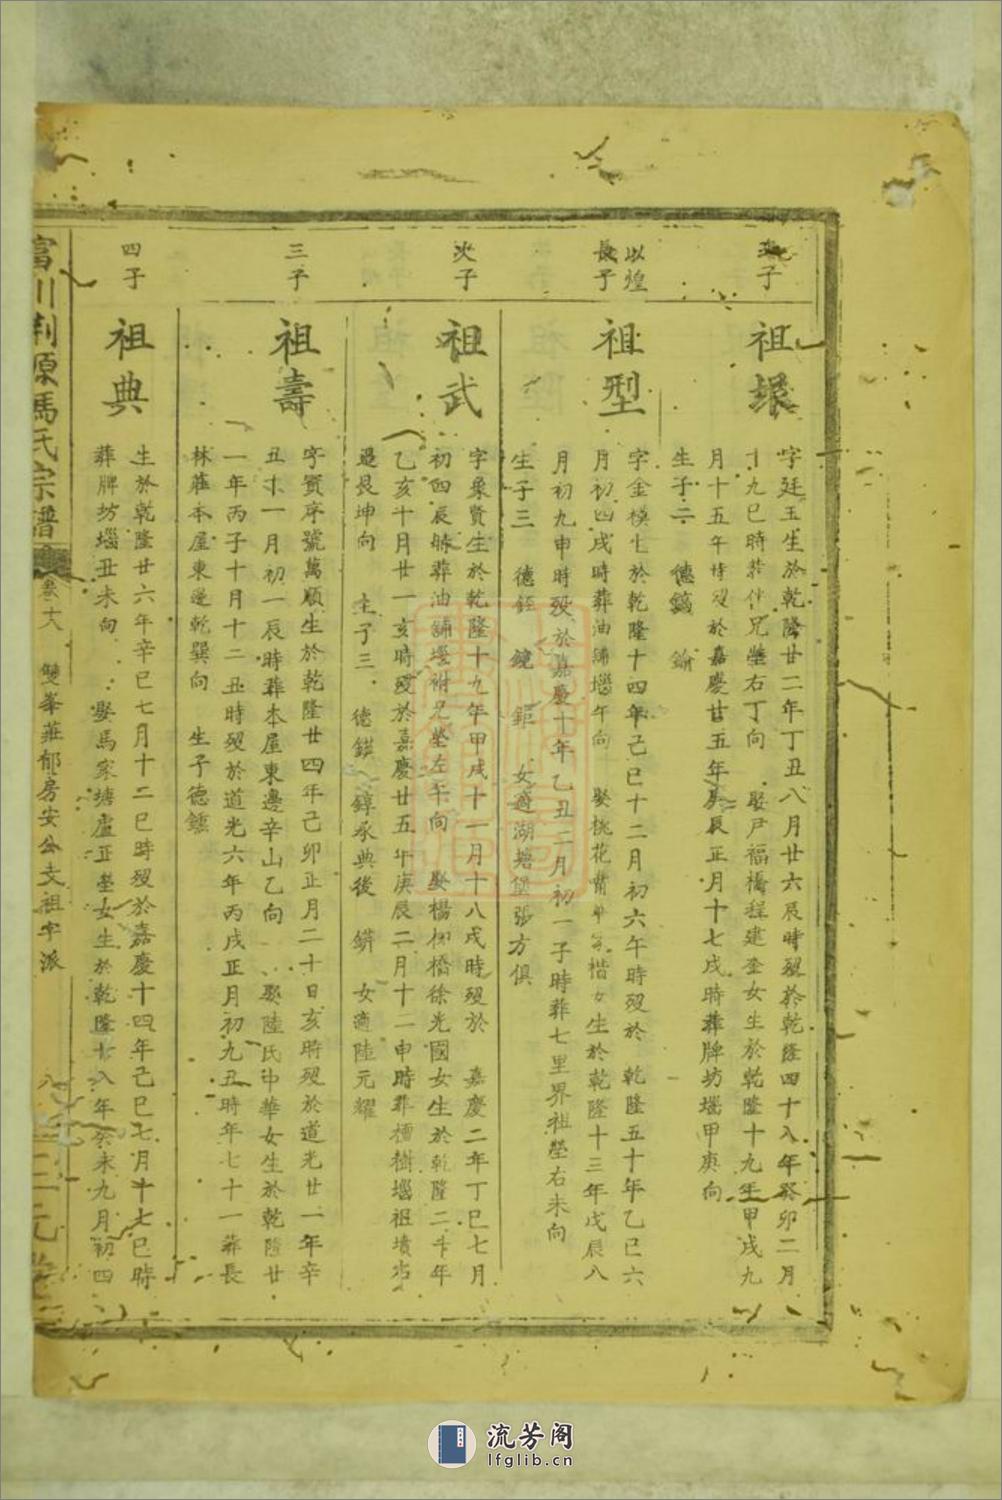 次子
祖
字廷玉生於乾隆廿二年丁丑八月廿六辰時殁於乾隆四十八年癸卯二月
十九巳時葬伴兄塋右丁向 娶尹福橋程建奎女生於乾隆十九年甲戌九
月十五午時殁於嘉慶廿五年庚辰正月十七戌時葬牌坊堖甲庚向
生子二 德鎬
以煌
長子
祖型
字金模生於乾隆十四年己巳十二月初六午時殁於 乾隆五十年乙巳六
月初四戌時葬油鋪堖午向 娶桃花 楷女生於乾隆十三年戊辰八
月初九申時殁於嘉慶十年乙丑二月初一子時葬七里界祖塋右未向
生子三 德鉦 鏡 鉅 女適湖塘堡張方俱
次子
祖武
字象賢生於乾隆十九年甲戌十一月十八戌時殁於 嘉慶二年丁巳七月
初四辰時葬油鋪堖祔兄塋左午向 娶楊柳橋徐光國女生於乾隆二十年
乙亥十月廿一亥時殁於嘉慶廿五年庚辰二月十二申時葬檀樹堖祖墳
邊艮坤向 生子三 德 錞承典後 女適陸元耀
三子
祖壽
字賓序號萬順生於乾隆廿四年己卯正月二十日亥時殁於道光廿一年辛
丑十一月初一辰時葬本屋東邊辛山乙向 娶陸氏中華女生於乾隆廿
一年丙子十月十二丑時殁於道光六年丙戌正月初九丑時年七十一葬長
林莊本屋東邊乾巽向 生子德
四子
祖典
生於乾隆廿六年辛巳七月十二巳時殁於嘉慶十四年己巳七月十七巳時
葬牌坊堖丑未向 娶馬家塘盧正 女生於乾隆廿八年癸未九月初四
富川荆源馮氏宗譜 卷十六 雙峯莊郁房安公支祖字派 八 三元堂
流芳阁
lfglib.cn